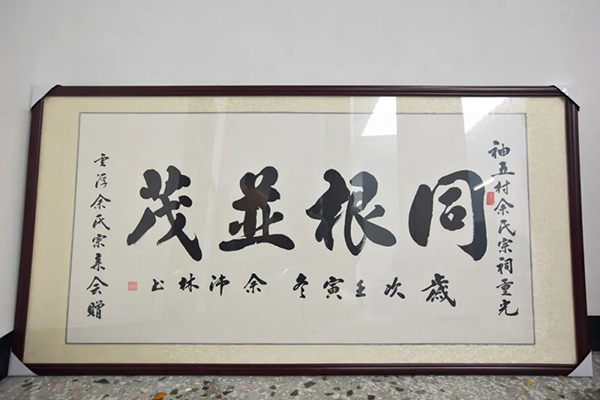 袖五村余氏宗祠重光
同根並茂
歲次壬寅冬 余沛林书
雲浮余氏宗亲会贈